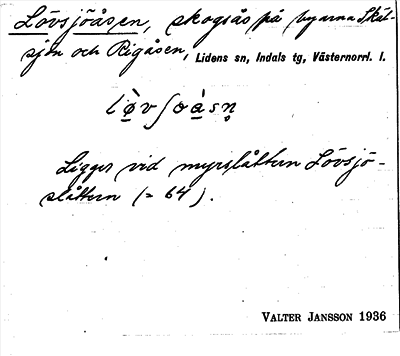 Lövsjöåsen, skogsås på byarna Skät-
sjön och Rigåsen, Lidens sn, Indals tg, Västernorrl. l.
lø̀vʃoàsn̥
Ligger vid myrslåttern Lövsjö-
slåttern (= 64).
VALTER JANSSON 1936